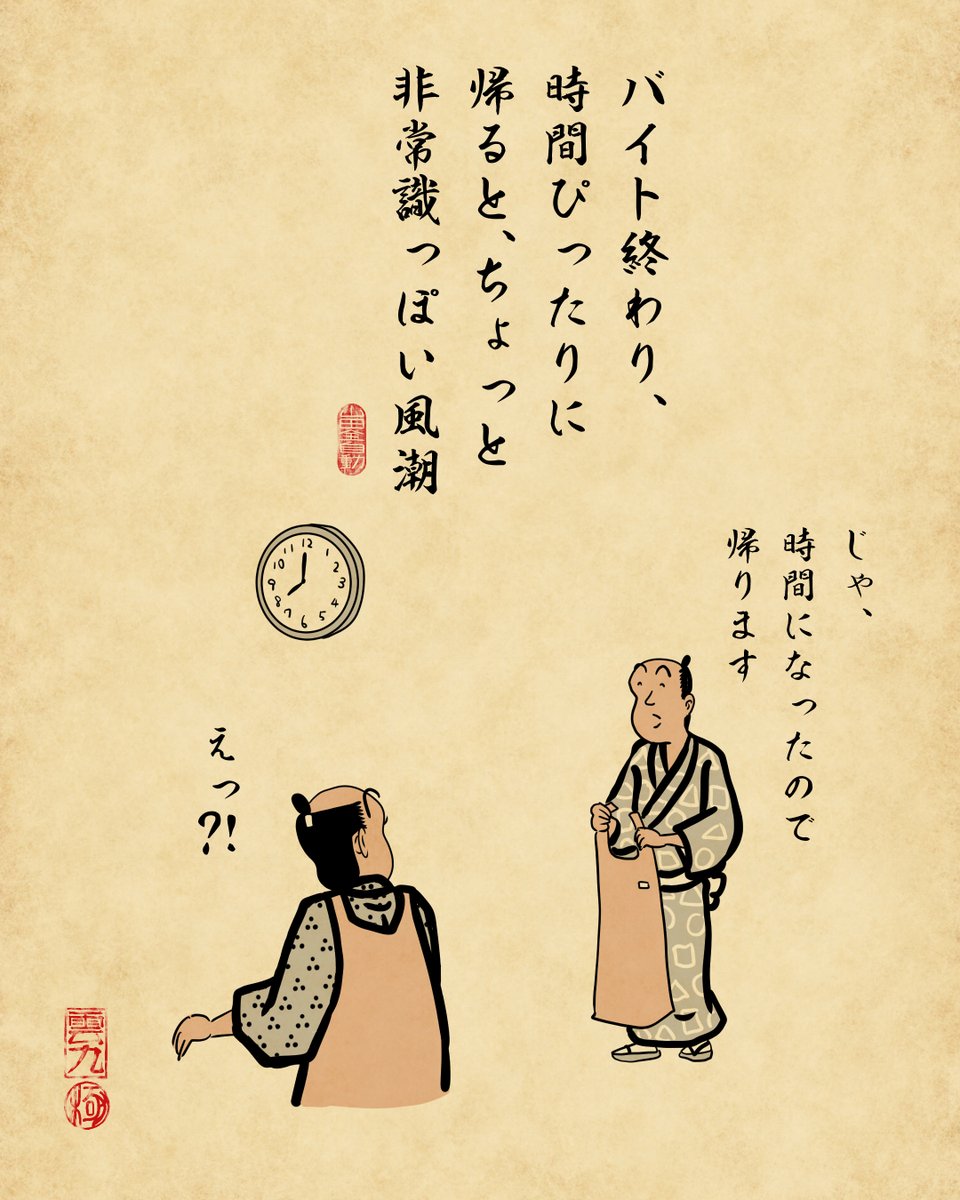 バイト終わり、
時間ぴったりに
帰ると、ちょっと
非常識っぽい風潮
じゃ、
時間になったので
帰ります
12
1
2
3
4
5
6
7
8
9
10
11
えっ?!